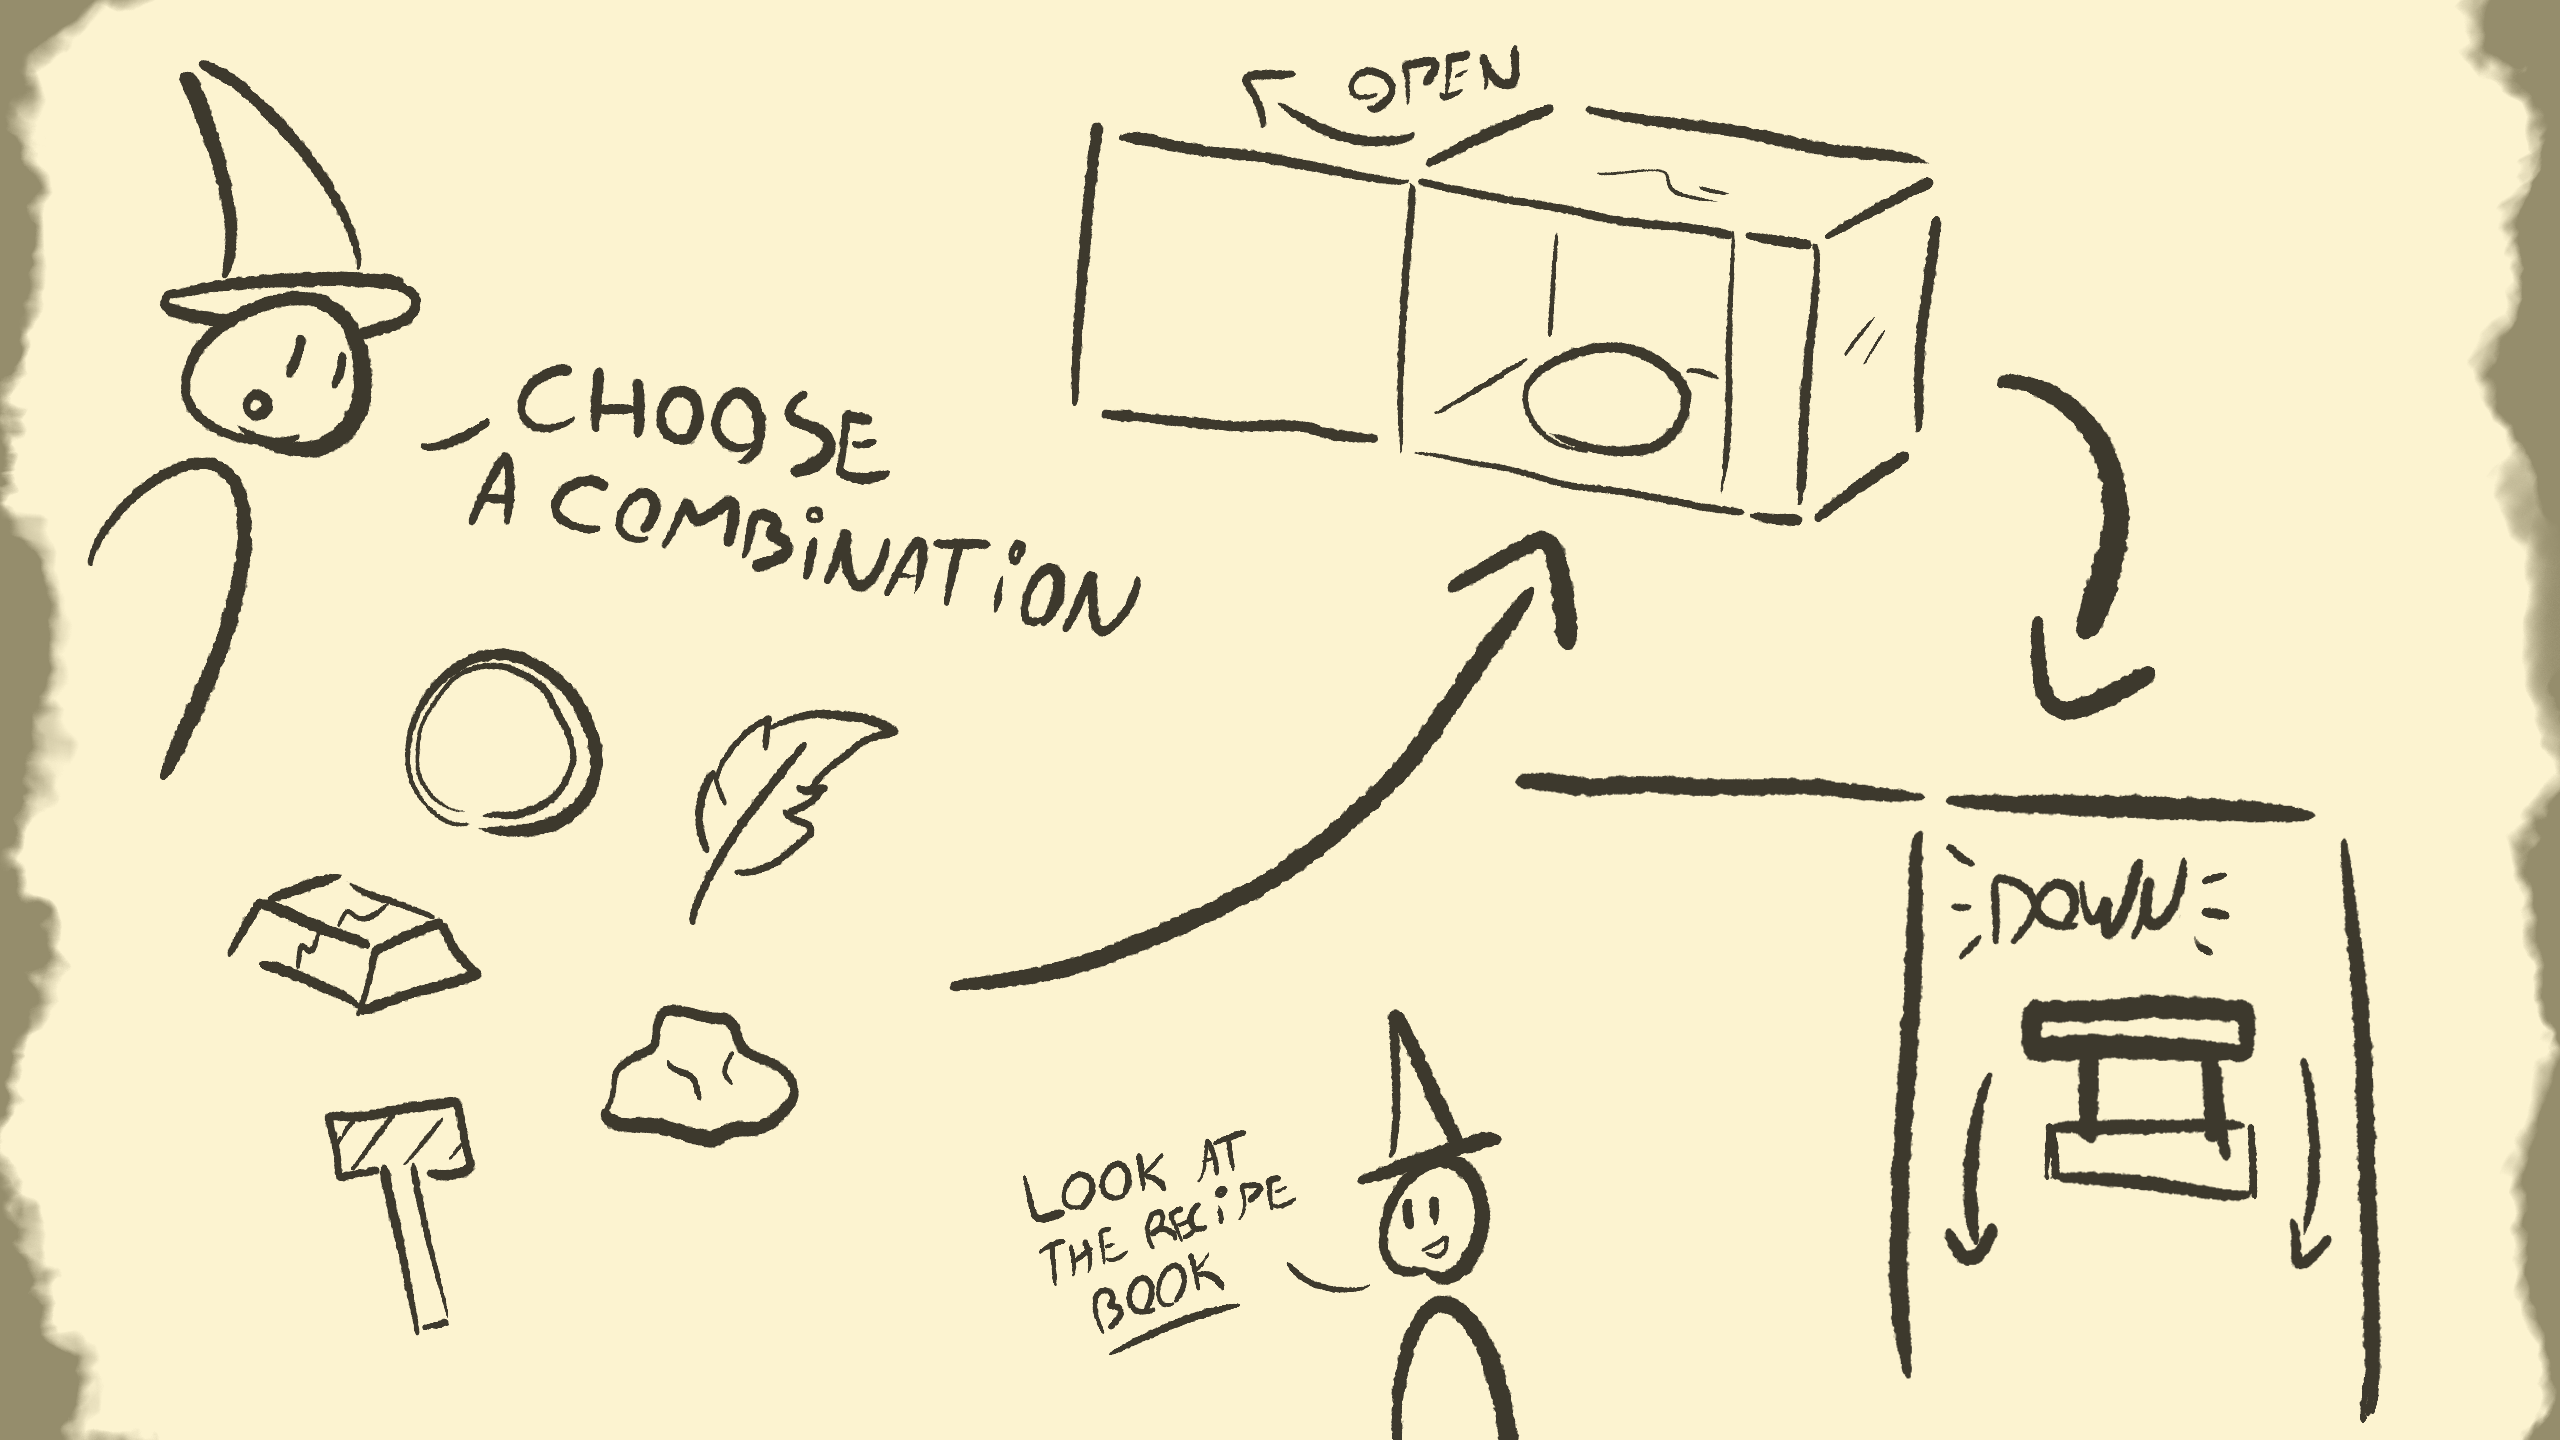 OPEN
CHOOSE
A COMBINATION
DOWN
LOOK AT
THE RECIPE
BOOK